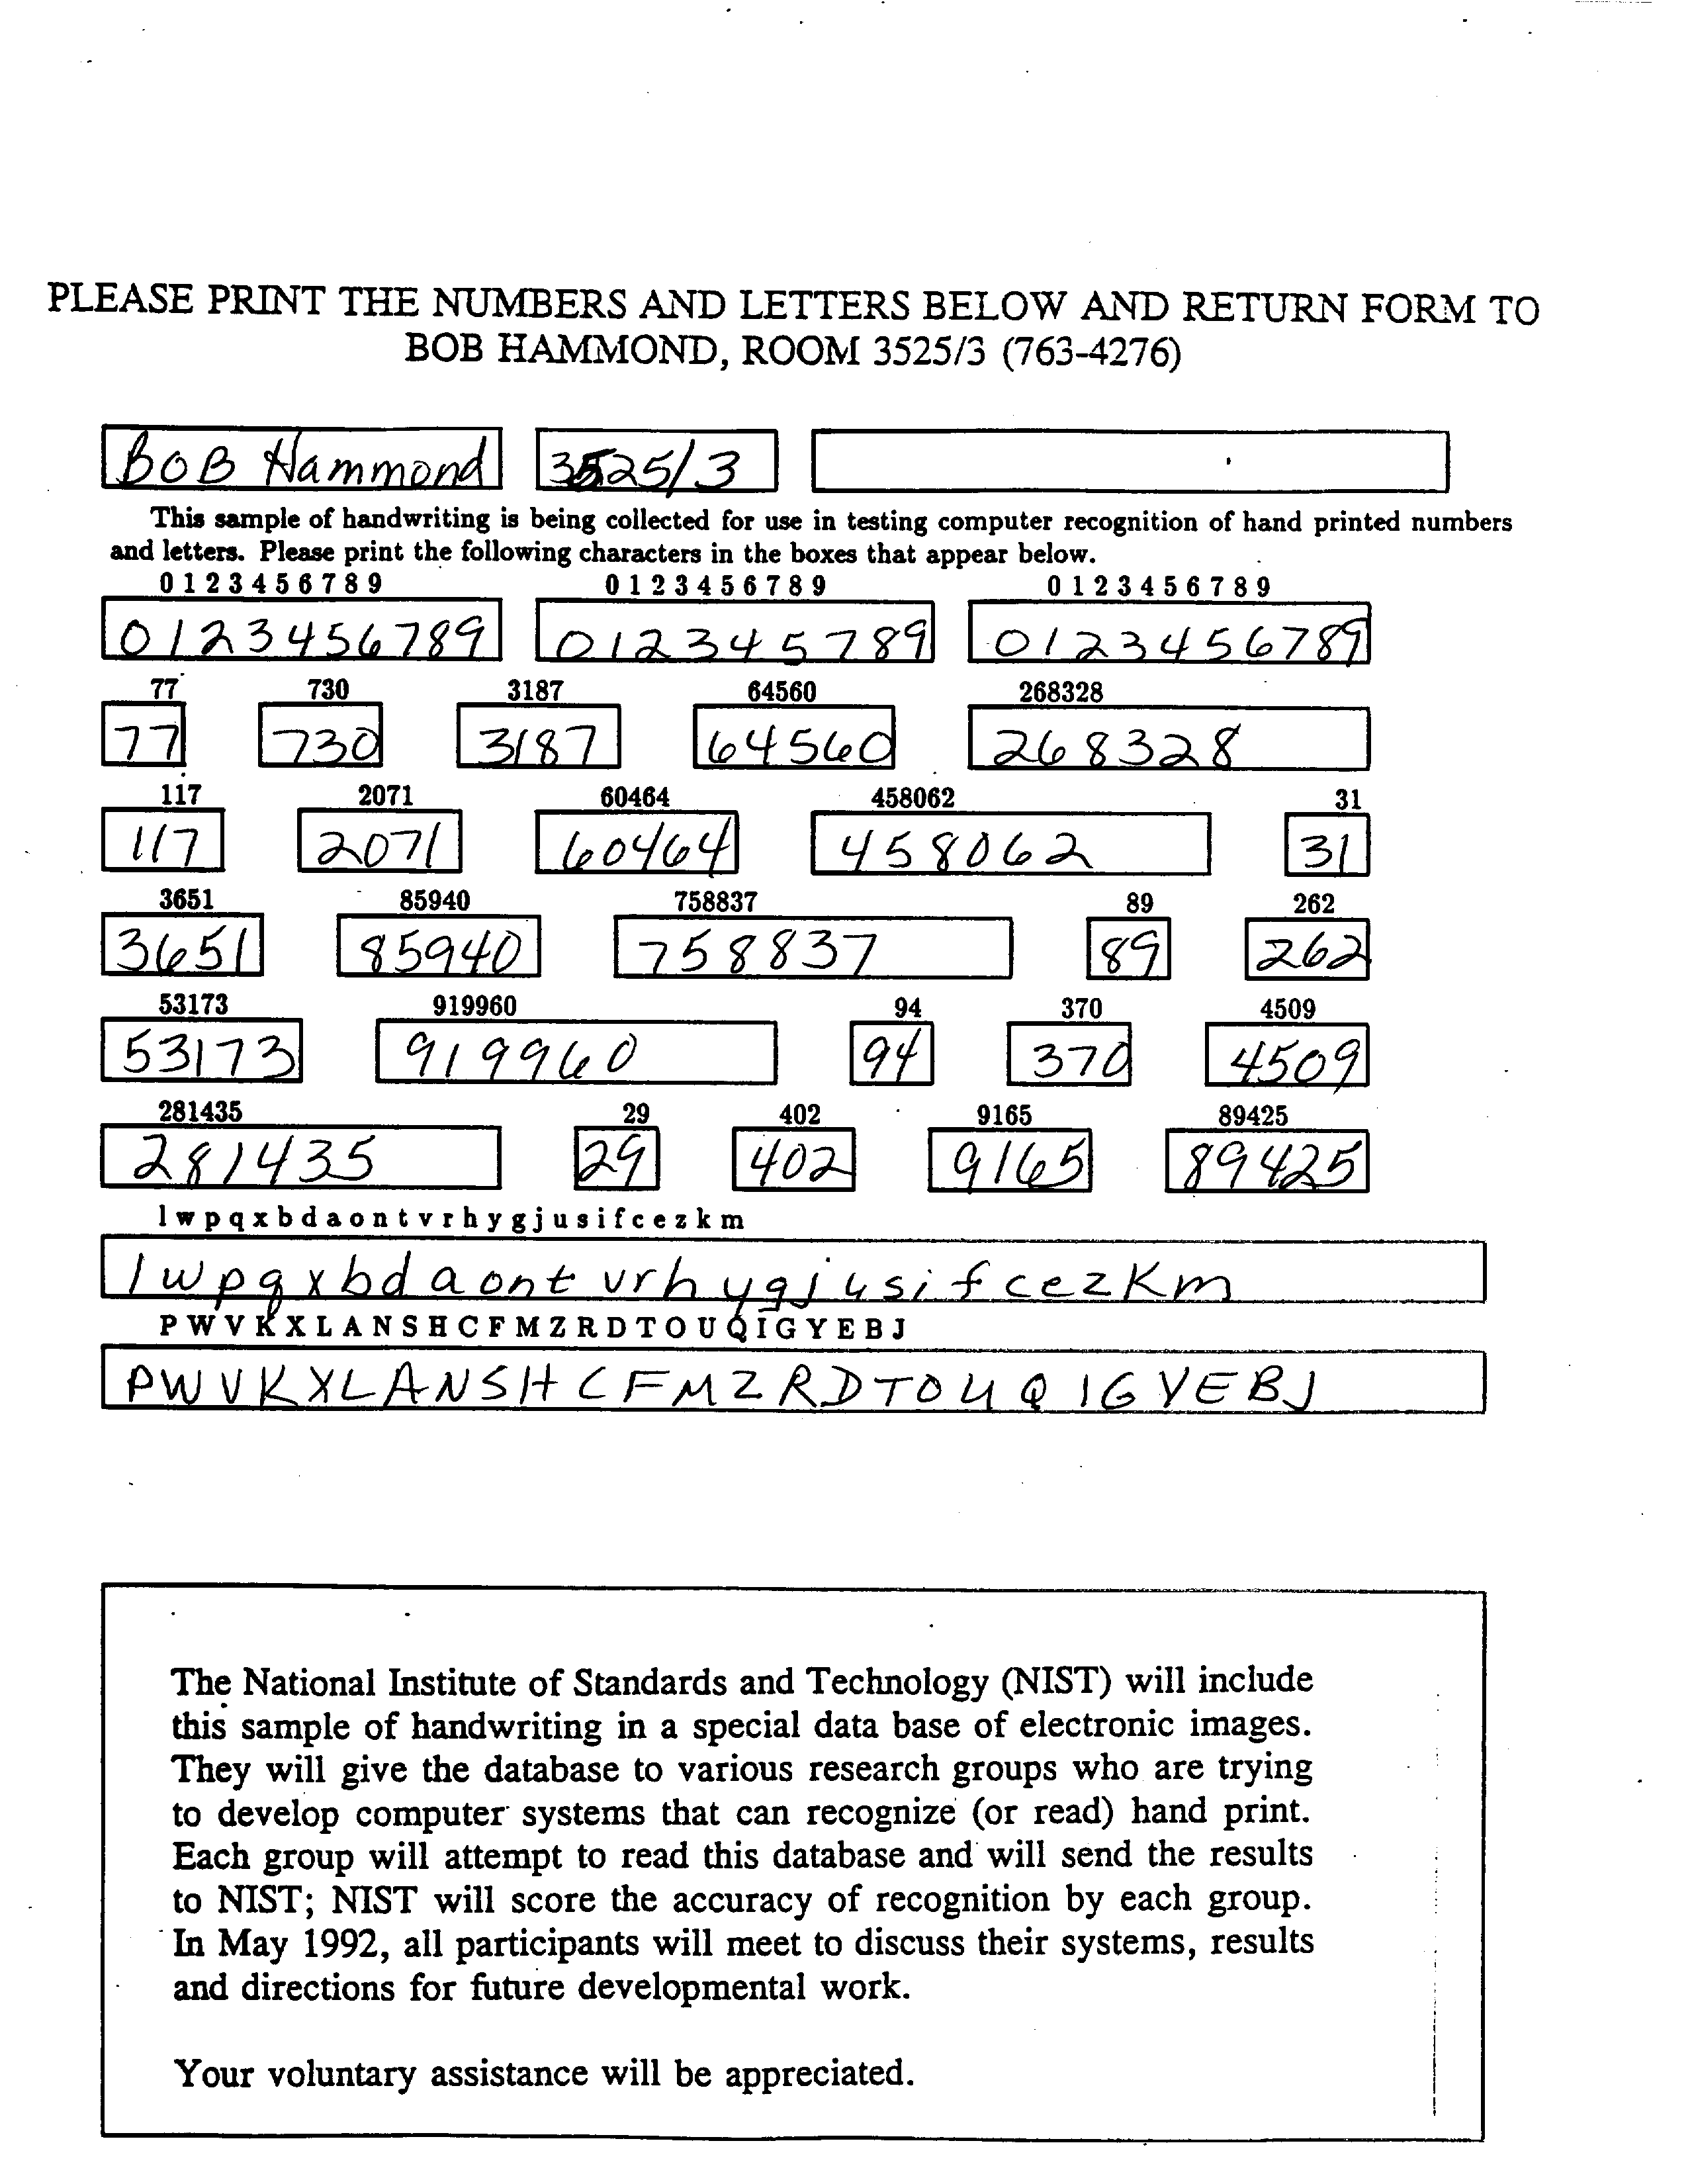 PLEASE PRINT THE NUMBERS AND LETTERS BELOW AND RETURN FORM TO
BOB HAMMOND, ROOM 3525/3 (763-4276)
BOB Hammond 3525/3
This sample of handwriting is being collected for use in testing computer recognition of hand printed numbers
and letters. Please print the following characters in the boxes that appear below.
0 1 2 3 4 5 6 7 8 9 0 1 2 3 4 5 6 7 8 9 0 1 2 3 4 5 6 7 8 9
0123456789 012345789 0123456789
77 730 3187 64560 268328
77 730 3187 64560 268328
117 2071 60464 458062 31
117 2071 60464 458062 31
3651 85940 758837 89 262
3651 85940 758837 89 262
53173 919960 94 370 4509
53173 919960 94 370 4509
281435 29 402 9165 89425
281435 29 402 9165 89425
l w p q x b d a o n t v r h y g j u s i f c e z k m
l w p q x b d a o n t v r h y g j u s i f c e z K m
P W V K X L A N S H C F M Z R D T O U Q I G Y E B J
P W V K X L A N S H C F M Z R D T O U Q I G Y E B J
The National Institute of Standards and Technology (NIST) will include
this sample of handwriting in a special data base of electronic images.
They will give the database to various research groups who are trying
to develop computer systems that can recognize (or read) hand print.
Each group will attempt to read this database and will send the results
to NIST; NIST will score the accuracy of recognition by each group.
In May 1992, all participants will meet to discuss their systems, results
and directions for future developmental work.
Your voluntary assistance will be appreciated.